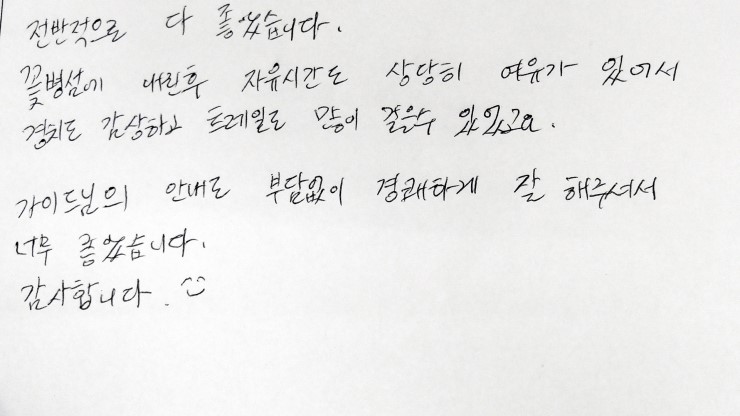 전반적으로 다 좋았습니다.
꽃병섬에 내린후 자유시간도 상당히 여유가 있어서
경치도 감상하고 트레일로 많이 걸을수 있었고요.
가이드님의 안내도 부담없이 경쾌하게 잘 해주셔서
너무 좋았습니다.
감사합니다. ^^